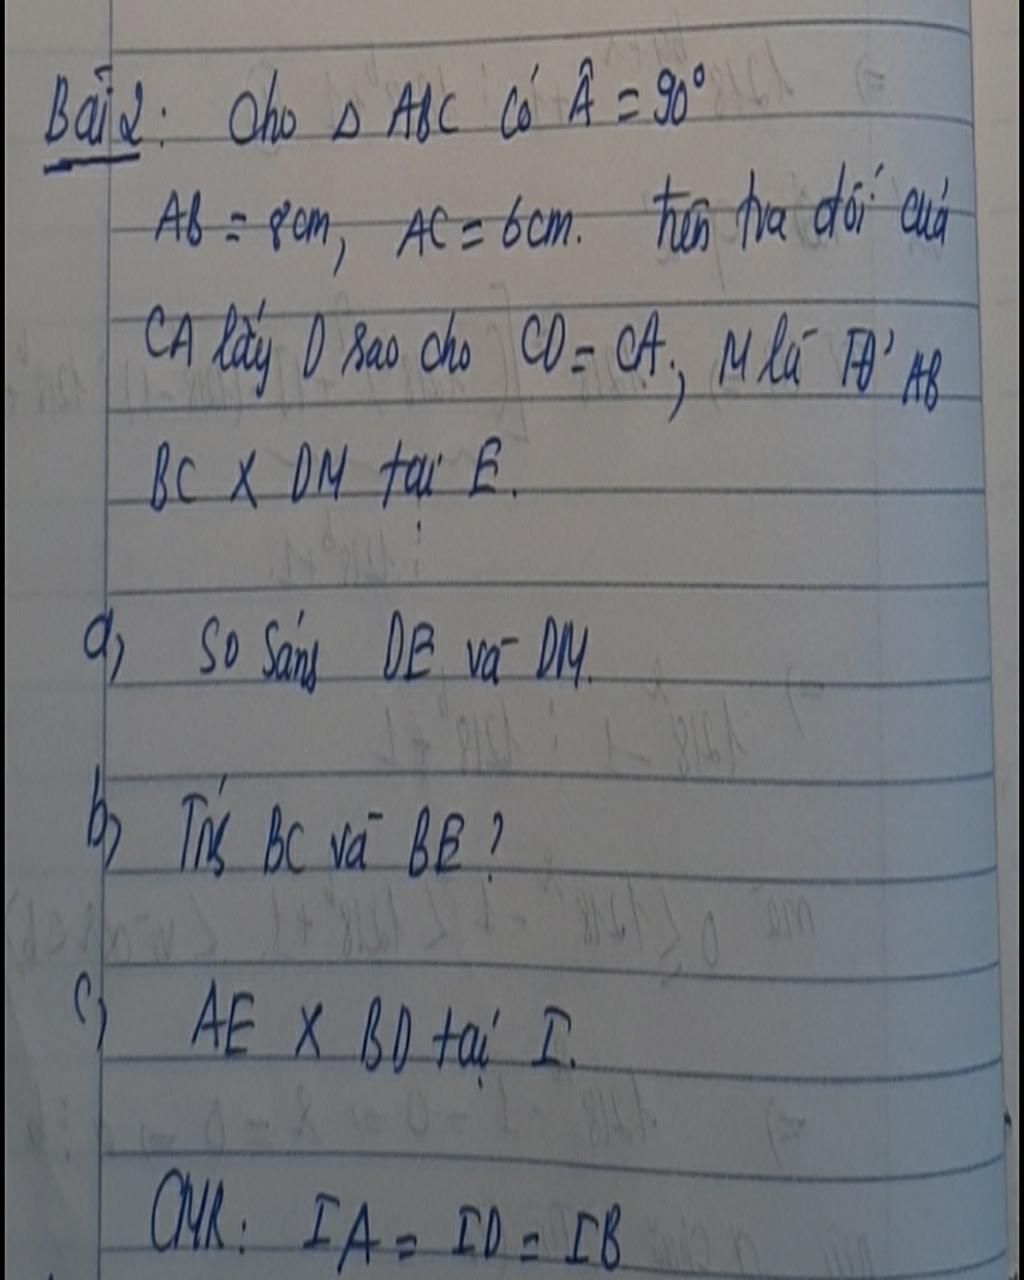 Bài 2: Cho Δ ABC có Â = 90°
AB = 8cm, AC = 6cm. trên tia đối của
CA lấy D sao cho CD = CA; M là TĐ' AB
BC X DM tại E.
a, So sánh DE và DM.
b, Tính BC và BE?
c, AE X BD tại I.
CMR: IA = ID = IB